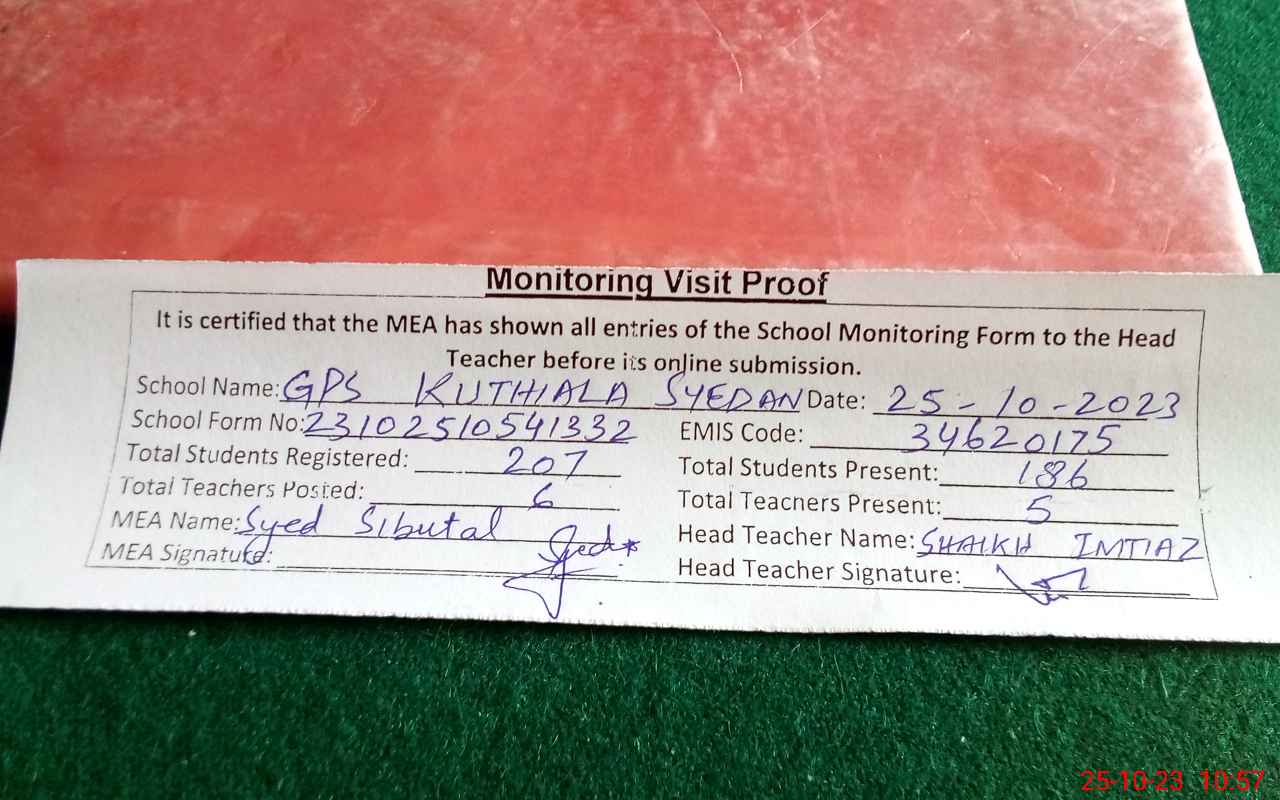 Monitoring Visit Proof
It is certified that the MEA has shown all entries of the School Monitoring Form to the Head
Teacher before its online submission.
School Name: GPS KUTHIALA SYEDAN Date: 25-10-2023
School Form No: 23102510541332 EMIS Code: 34620175
Total Students Registered: 207 Total Students Present: 186
Total Teachers Posted: 6 Total Teachers Present: 5
MEA Name: Syed Sibutal Head Teacher Name: SHAIKH IMTIAZ
MEA Signature: Head Teacher Signature:
25-10-23 10:57